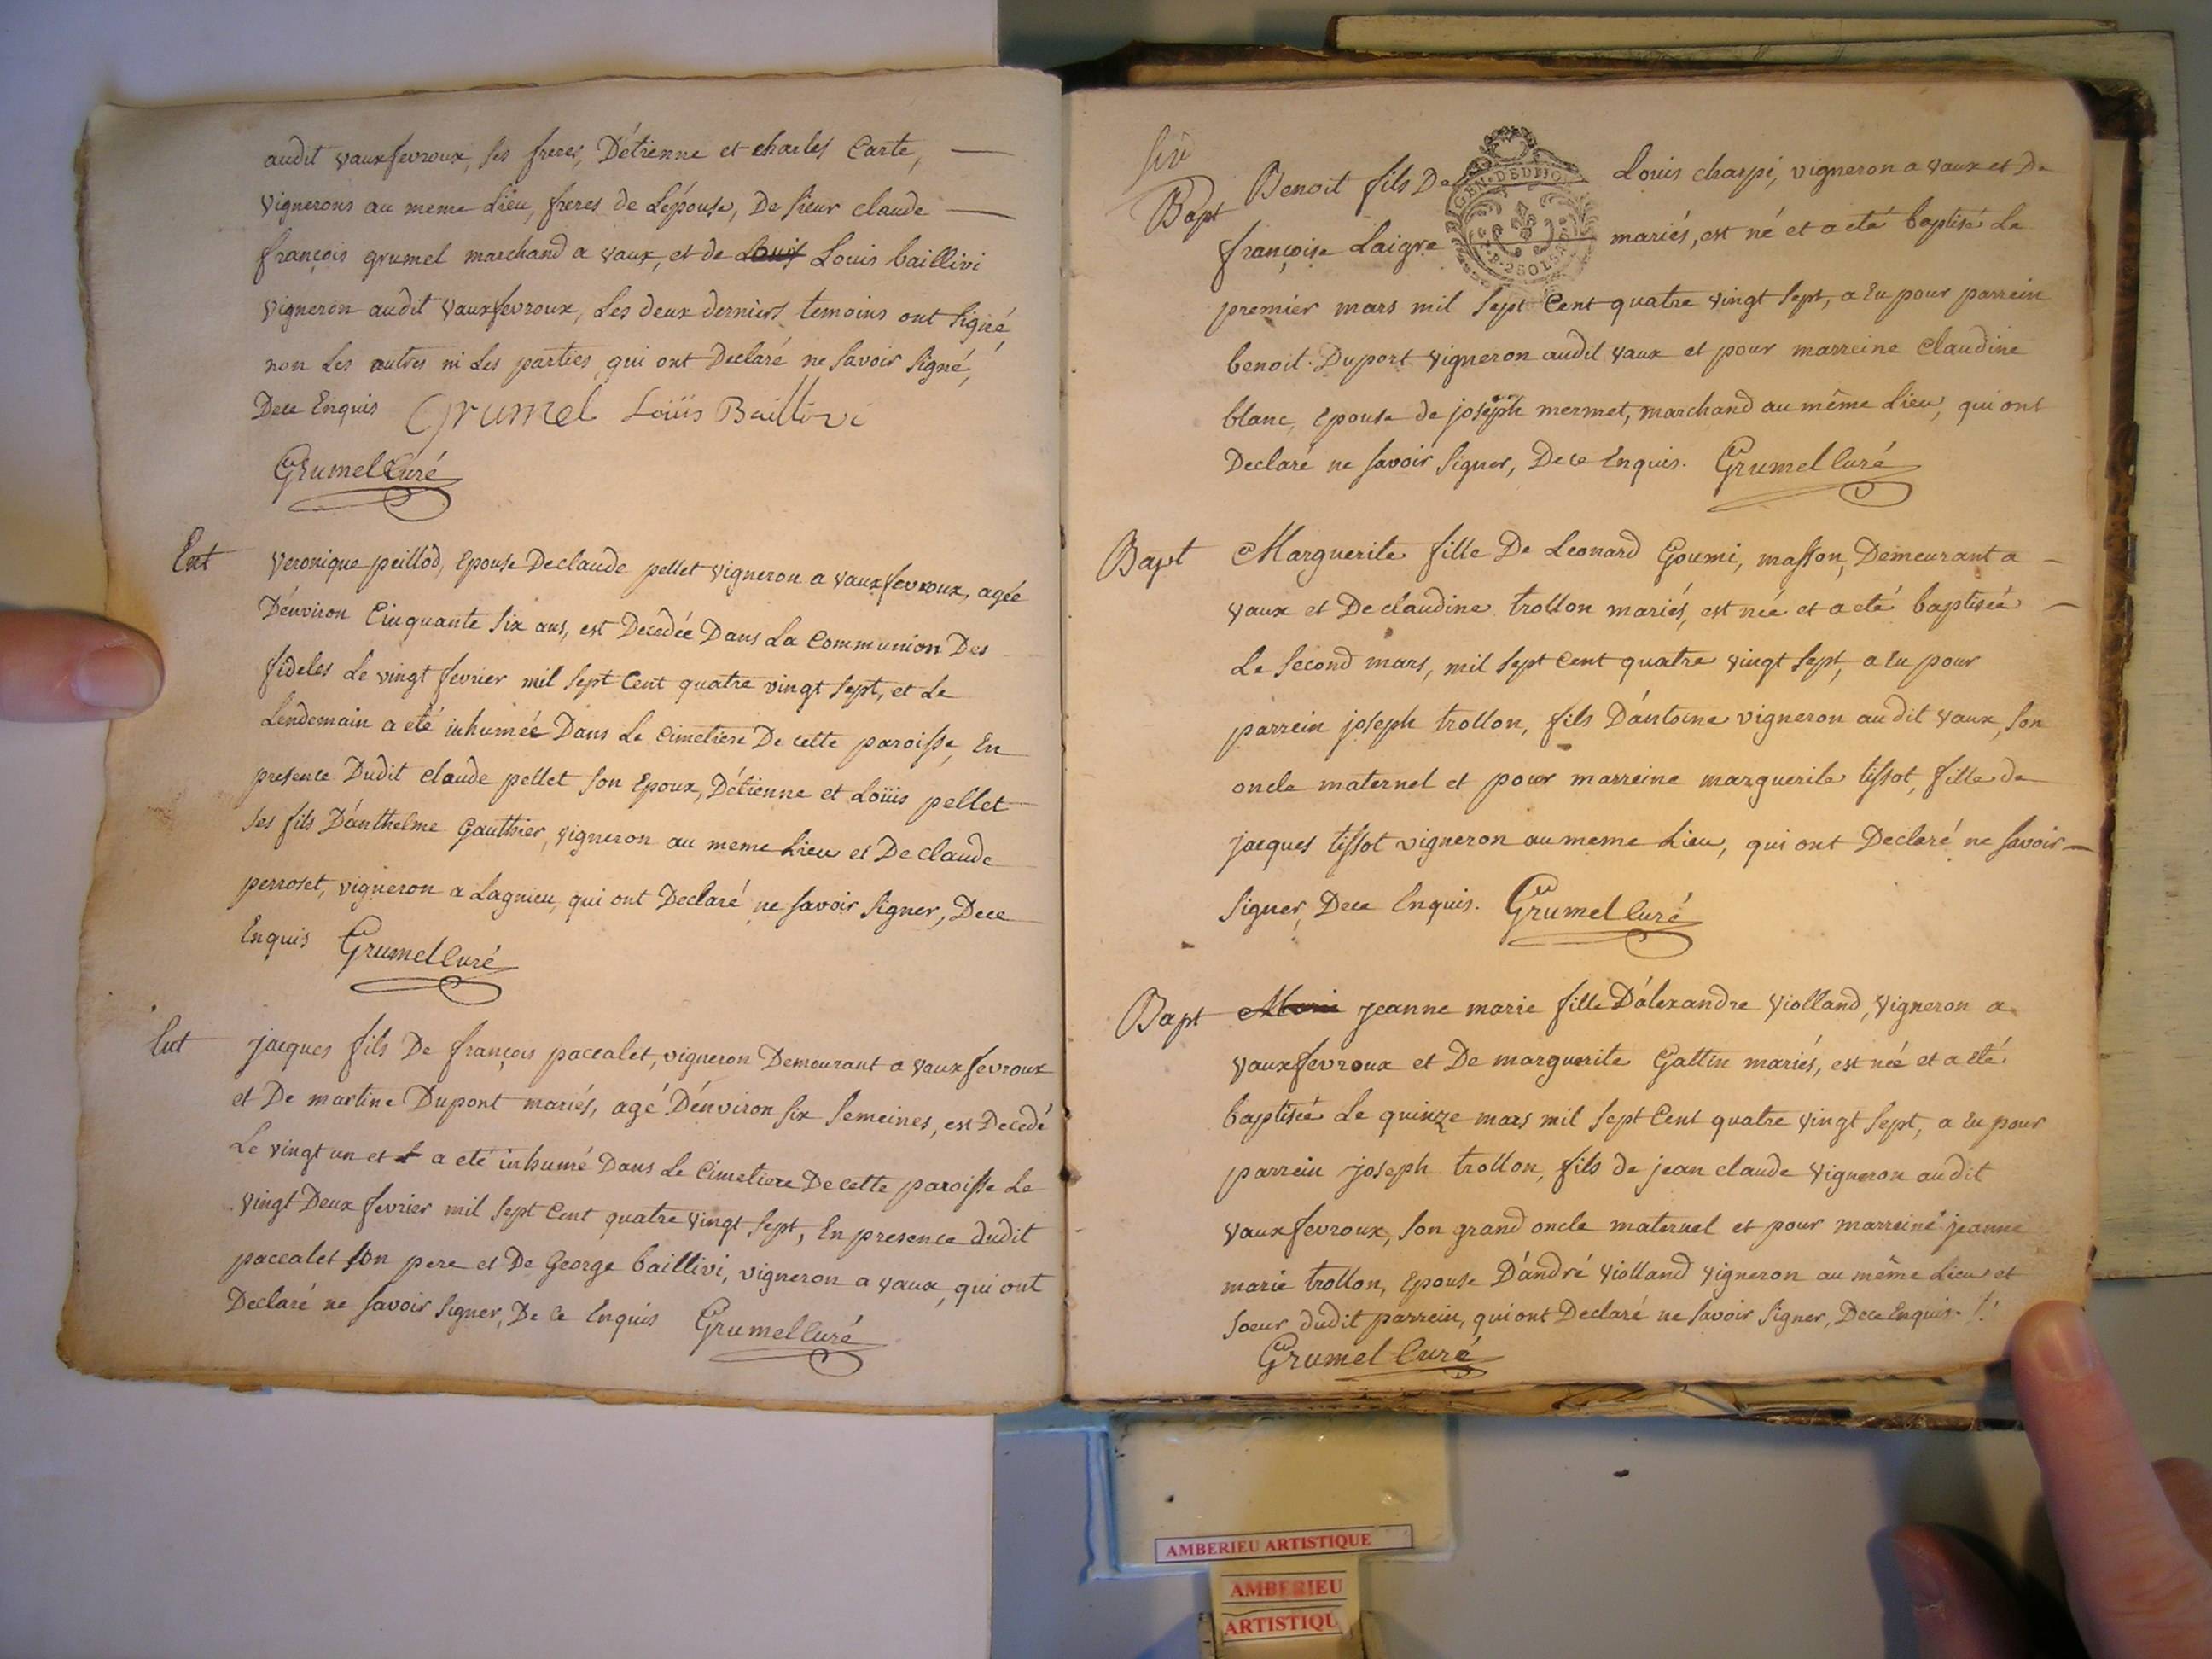 audit vauxfevroux, ses freres, D'étienne et charles Carte,
vignerons au meme Lieu, freres de L'épouse, De sieur claude
françois grumel marchand a vaux, et de Louis Louis baillivi
vigneron audit vauxfevroux, Les deux derniers temoins ont signé,
non Les autres ni Les parties, qui ont Declaré ne savoir signé,
Dece Enquis Grumel Loüis Baillivi
Grumel Curé
Ent Veronique peillod, Epouse Declaude pellet vigneron a vauxfevroux, agée
D'énviron Cinquante six ans, est Decedée Dans La Communion Des
fideles Le vingt fevrier mil sept Cent quatre vingt sept, et Le
Lendemain a eté inhumée Dans Le Cimetiere De cette paroisse, En
presence Dudit claude pellet son Epoux, D'étienne et Loüis pellet
ses fils D'ánthelme Gauthier, vigneron au meme Lieu et De claude
perroset, vigneron a Lagnieu, qui ont Declaré ne savoir signer, Dece
Enquis Grumel Curé
Ent jacques fils De françois paccalet, vigneron Demeurant a vauxfevroux
et De martine Dupont mariés, agé D'énviron six semeines, est Decedé
Le vingt un et a eté inhumé Dans Le Cimetiere De cette paroisse Le
vingt Deux fevrier mil sept Cent quatre vingt sept, En presence dudit
paccalet son pere et De George baillivi, vigneron a vaux, qui ont
Declaré ne savoir signer, De Ce Enquis Grumel Curé
Bapt Benoit fils De Louis charpi, vigneron a vaux et De
GEN. D
françoise Laigre mariés, est né et a eté baptisé Le
premier mars mil sept Cent quatre vingt sept, a Eu pour parrein
benoit Duport vigneron audit vaux et pour marreine Claudine
blanc, Epouse de joseph mermet, marchand au même Lieu, qui ont
Declaré ne savoir signer, Dece Enquis. Grumel Curé
Bapt Marguerite fille De Leonard Goumi, masson, Demeurant a
vaux et De claudine trollon mariés, est née et a eté baptisée
Le second mars, mil sept Cent quatre vingt sept, a Eu pour
parrein joseph trollon, fils D'ántoine vigneron audit vaux, son
oncle maternel et pour marreine marguerite tissot, fille de
jacques tissot vigneron au meme Lieu, qui ont Declaré ne savoir
signer, Dece Enquis. Grumel Curé
Bapt Marie jeanne marie fille D'álexandre Violland, vigneron a
vauxfevroux et De marguerite Gattin mariés, est née et a eté
baptisée Le quinze mars mil sept Cent quatre vingt sept, a Eu pour
parrein joseph trollon, fils de jean claude vigneron audit
vauxfevroux, son grand oncle maternel et pour marreine jeanne
marie trollon, Epouse D'ándré Violland vigneron au même Lieu et
soeur dudit parrein, qui ont Declaré ne savoir signer, Dece Enquis.
Grumel Curé
AMBERIEU ARTISTIQUE
AMBERIEU
ARTISTIQU